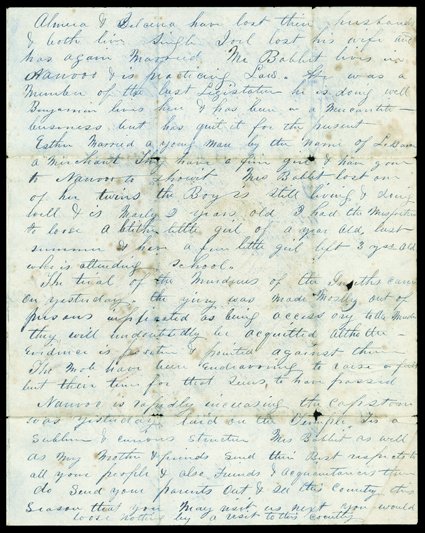 Almira & have lost their husband
& both live Single Joel lost his wife and
has again Married, Mr Babbit lives in
Nauvoo & is practicing Law. He was a
Member of the last Legislature he is doing well
Benjamin lives here & has been in a Mercantile
business. but has quit it for the present
Esther Married a young Man by the Name of LeBaron
a Merchant They have a fine girl & have gone
to Nauvoo to Mrs Babbit lost one
of her twins the Boy is still living & doing
well & is Nearly 2 years old I had the Misfortune
to loose a little girl of a year old last
summer & have a fine little girl left 3 yrs old
who is attending school.
The trial of the Murderers of the Smiths came
on yesterday. the jury was made Mostly out of
persons as being accessory to the Murder
they will undoubtedly be acquitted altho the
Evidence is & pointed against them
The Mob have been Endeavoring to raise a
but their time for that seems to have passed
Nauvoo is rapidly increasing the Cap stone
was yesterday laid on the Temple Tis a
Sublime & curious Structure Mrs Babbit as well
as My Mother & friends send their Best respects to
all your people & also Friends & acquaintances there
do Send your parents out & see this Country this
Season that you May visit us next you would
loose nothing by a visit to this country